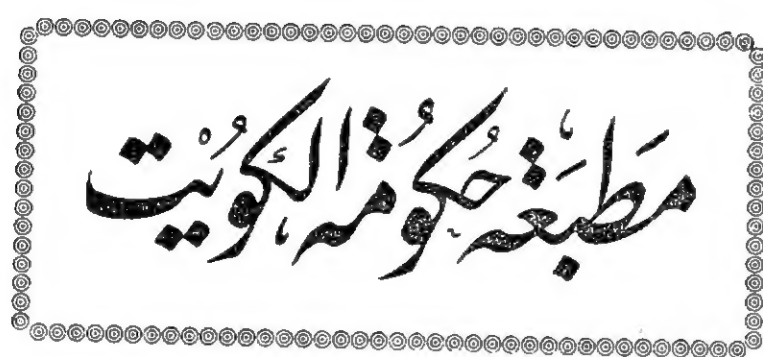 مَطبَعَة حُكُومَة الكُوَيْت